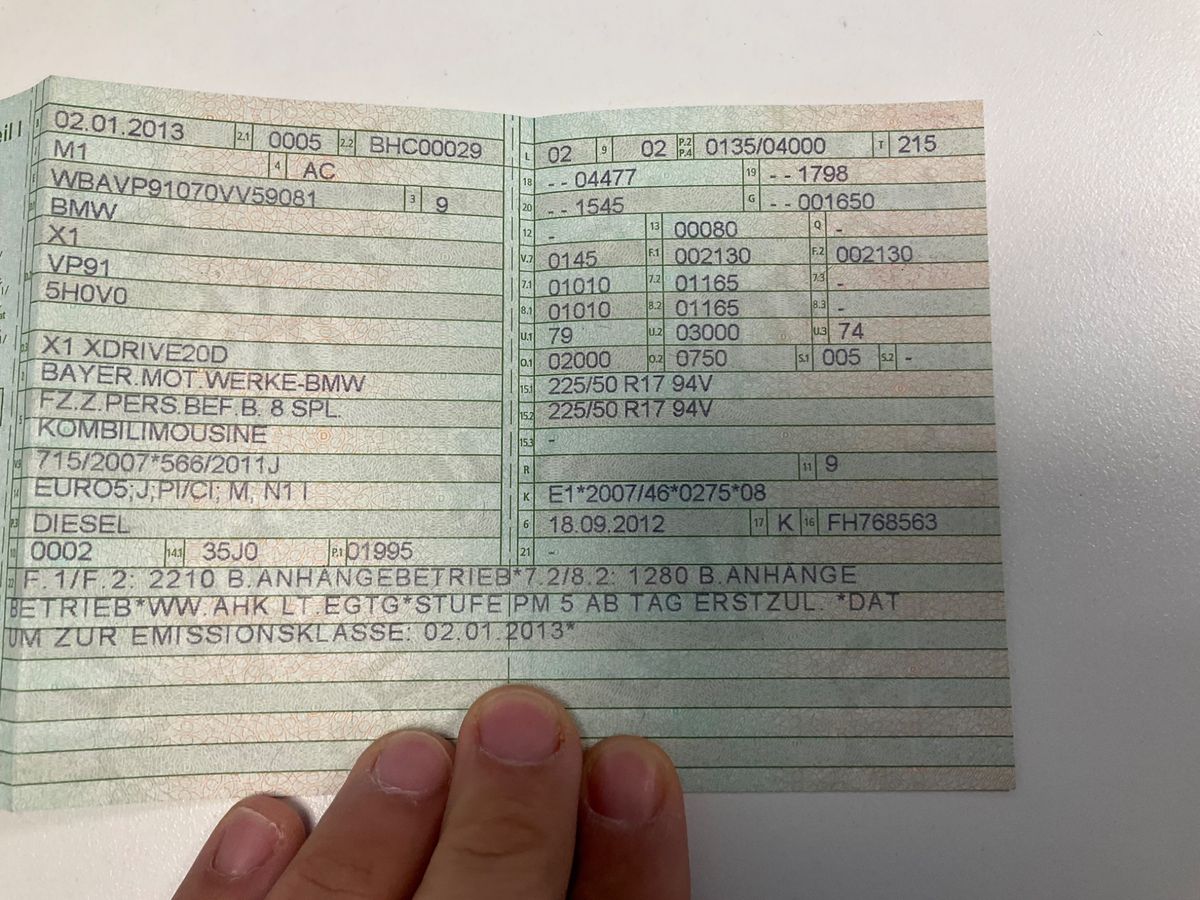 eil I
B 02.01.2013 2.1 0005 2.2 BHC00029
J M1 4 AC
E WBAVP91070VV59081 3 9
D.1 BMW
X1
D.2 VP91
5H0V0
D.3 X1 XDRIVE20D
2 BAYER.MOT.WERKE-BMW
5 FZ.Z.PERS.BEF.B. 8 SPL.
KOMBILIMOUSINE
V.9 715/2007*566/2011J
14 EURO5;J;PI/CI; M, N1 I
P.3 DIESEL
10 0002 14.1 35J0 P.1 01995
L 02 9 02 P.2 P.4 0135/04000 T 215
18 - - 04477 19 - - 1798
20 - - 1545 G - - 001650
12 - 13 00080 Q -
V.7 0145 F.1 002130 F.2 002130
7.1 01010 7.2 01165 7.3 -
8.1 01010 8.2 01165 8.3 -
U.1 79 U.2 03000 U.3 74
O.1 02000 O.2 0750 S.1 005 S.2 -
15.1 225/50 R17 94V
15.2 225/50 R17 94V
15.3 -
R 11 9
K E1*2007/46*0275*08
6 18.09.2012 17 K 16 FH768563
21 -
22 F.1/F.2: 2210 B.ANHÄNGEBETRIEB*7.2/8.2: 1280 B.ANHÄNGE
BETRIEB*WW.AHK LT.EGTG*STUFE PM 5 AB TAG ERSTZUL. *DAT
UM ZUR EMISSIONSKLASSE: 02.01.2013*